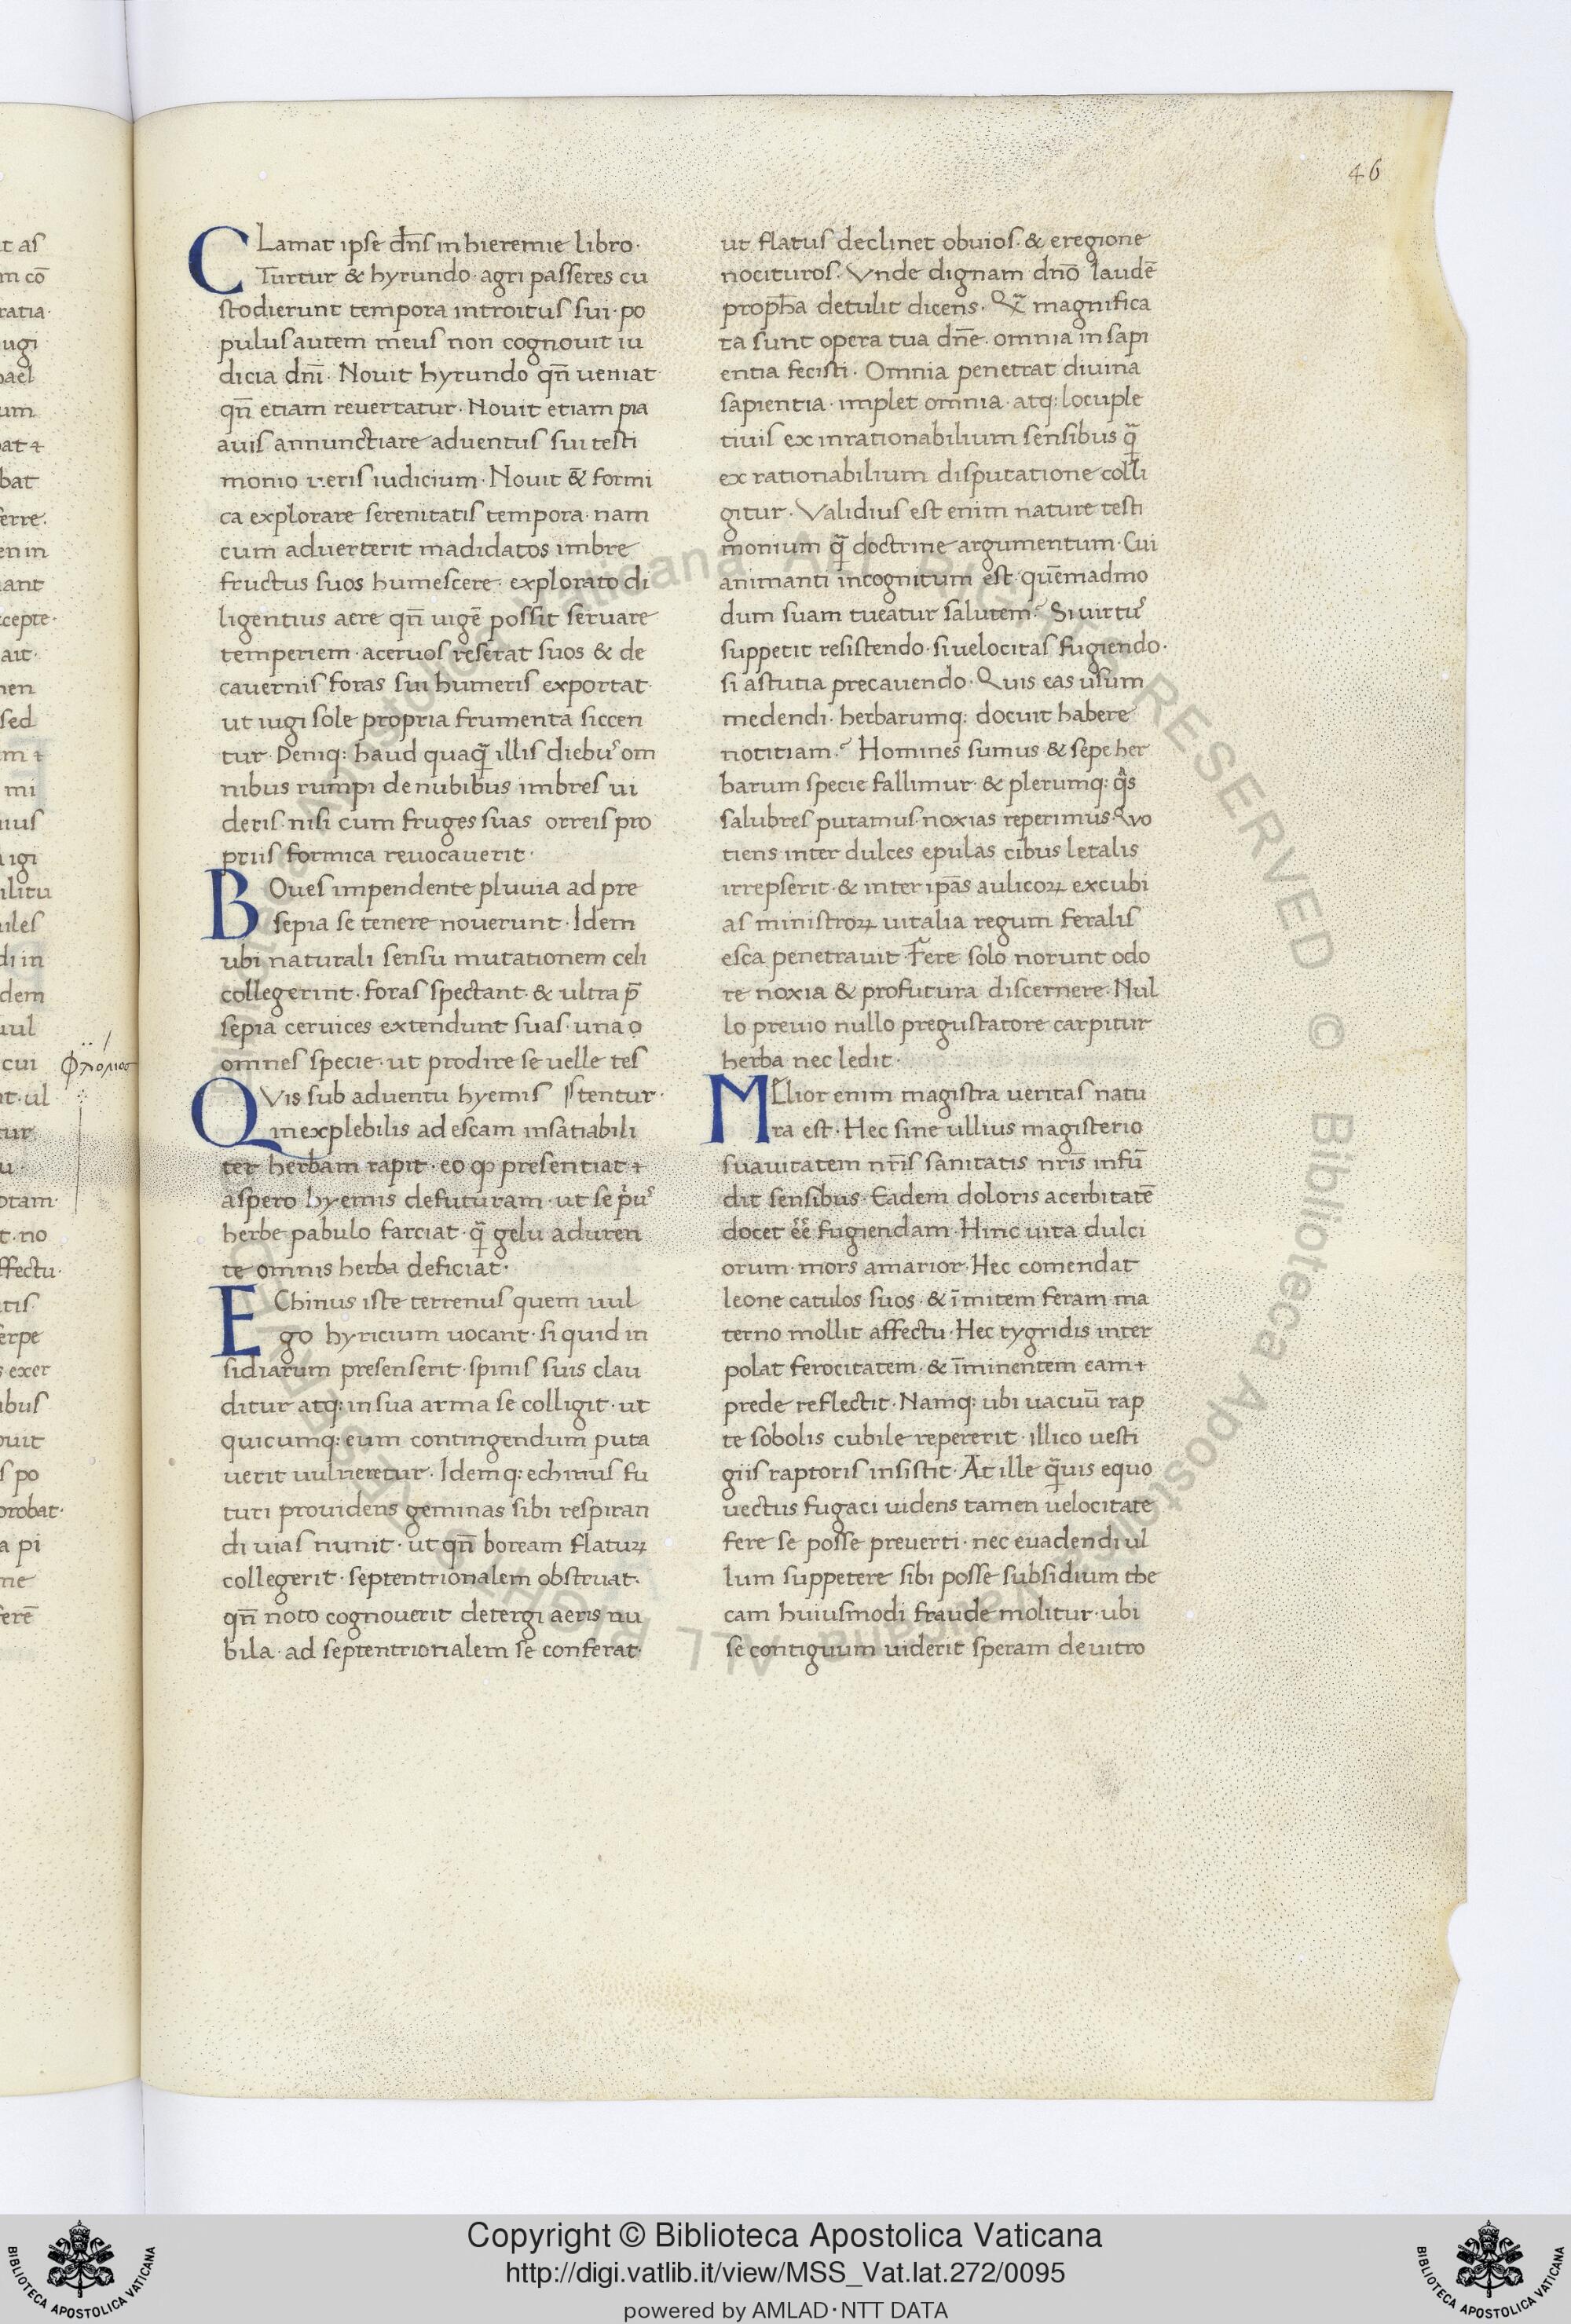 46
CLamat ipse dn̄s in hieremie libro·
Turtur & hyrundo· agri passeres cu
stodierunt tempora introitus sui· po
pulus autem meus non cognouit iu
dicia dnī· Nouit hyrundo qn̄ ueniat·
qn̄ etiam reuertatur· Nouit etiam pia
auis annunctiare aduentus sui testi
monio ueris iudicium· Nouit &̄ formi
ca explorare serenitatis tempora· nam
cum aduerterit madidatos imbre
fructus suos humescere· explorato di
ligentius aere qn̄ uigē possit seruare
temperiem· aceruos reserat suos & de
cauernis foras sui humeris exportat·
ut iugi sole propria frumenta siccen
tur· Deniq: haud quaq̄ illis diebuˀ om
nibus rumpi de nubibus imbres ui
deris· nisi cum fruges suas orreis pro
priis formica reuocauerit·
BOues impendente pluuia ad pre
sepia se tenere nouerunt· Idem
ubi naturali sensu mutationem celi
collegerint· foras spectant· & ultra p̄
sepia ceruices extendunt suas· una o
omnes specie· ut prodire se uelle tes
QVis sub aduentu hyemis tentur·
inexplebilis ad escam insatiabili
ter herbam rapit· eo ꝙ presentiat ÷
aspero hyemis defuturam· ut se p̍uˀ
herbe pabulo farciat· q̄ gelu aduren
te omnis herba deficiat·
EChinus iste terrenus quem uul
go hyricium uocant· si quid in
sidiarum presenserit· spinis suis clau
ditur atq: in sua arma se colligit· ut
quicumq: eum contingendum puta
uerit uulneretur· Idemq: echinus fu
turi prouidens geminas sibi respiran
di uias nunit· ut qn̄ boream flatuꝝ
collegerit· septentrionalem obstruat·
qn̄ noto cognouerit detergi aeris nu
bila· ad septentrionalem se conferat·
ut flatus declinet obuios· & eregione
nocituros· Vnde dignam dnō laudē
proph̄a detulit dicens· Q̄ magnifica
ta sunt opera tua dn̄e· omnia in sapi
entia fecisti· Omnia penetrat diuina
sapientia· implet omnia· atq: locuple
tiuis ex inrationabilium sensibus q̄
ex rationabilium disputatione colli
gitur· Validius est enim nature testi
monium q̄ doctrine argumentum· Cui
animanti incognitum est· quēmadmo
dum suam tueatur salutem? Si uirtuˀ
suppetit resistendo· si uelocitas fugiendo·
si astutia precauendo· Quis eas usum
medendi· herbarumq: docuit habere
notitiam? Homines sumus & sepe her
barum specie fallimur· & plerumq: q̄s
salubres putamus· noxias reperimus· Quo
tiens inter dulces epulas cibus letalis
irrepserit· & inter ip̄as aulicoꝝ excubi
as ministroꝝ uitalia regum feralis
esca penetrauit· Fere solo norunt odo
re noxia & profutura discernere· Nul
lo preuio nullo pregustatore carpitur
herba nec ledit·
MElior enim magistra ueritas natu
ra est· Hec sine ullius magisterio
suauitatem nr̄is sanitatis nr̄is infū
dit sensibus· Eadem doloris acerbitatē
docet ēē fugiendam· Hinc uita dulci
orum· mors amarior· Hec comendat
leone catulos suos· & īmitem feram ma
terno mollit affectu· Hec tygridis inter
polat ferocitatem· & īminentem eam ÷
prede reflectit· Namq: ubi uacuū rap
te sobolis cubile repererit· illico uesti
giis raptoris insistit· At ille q̄uis equo
uectus fugaci uidens tamen uelocitate
fere se posse preuerti· nec euadendi ul
lum suppetere sibi posse subsidium the
cam huiusmodi fraude molitur· ubi
se contiguum uiderit speram de uitro
Copyright © Biblioteca Apostolica Vaticana
http://digi.vatlib.it/view/MSS_Vat.lat.272/0095
powered by AMLAD·NTT DATA